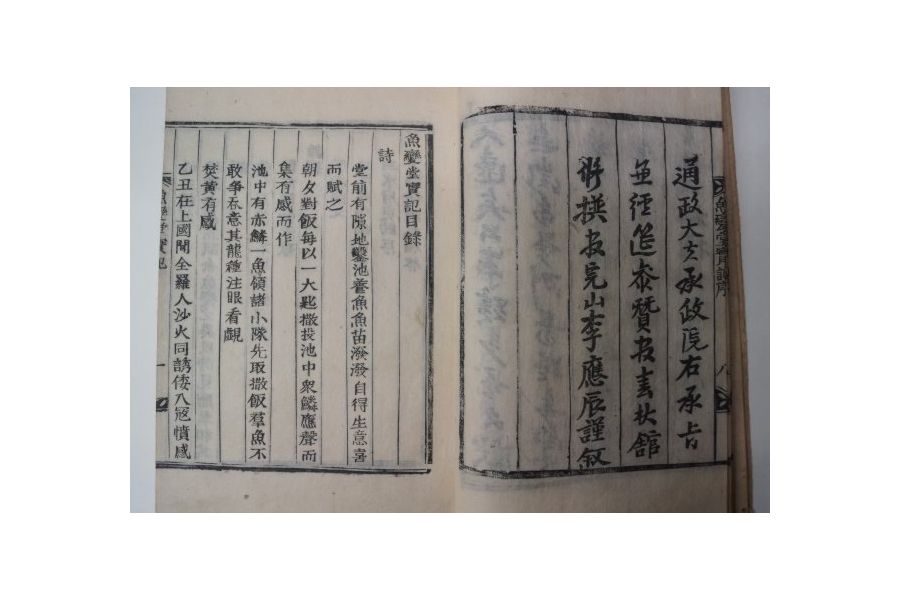 魚變堂實記序
八
通政大夫承政院右承旨
兼經筵參贊官春秋館
修撰官完山李應辰謹敘
魚變堂實記目錄
詩
堂前有隙地鑿池養魚魚苗潑潑自得生意喜
而賦之
朝夕對飯每以一大匙撒投池中衆鱗應聲而
集有感而作
池中有赤鱗一魚領諸小隊先取撒飯羣魚不
敢爭呑意其龍種注眼看覰
焚黃有感
乙丑在上國聞全羅人沙火同誘倭入冦憤感
魚變堂實記
一